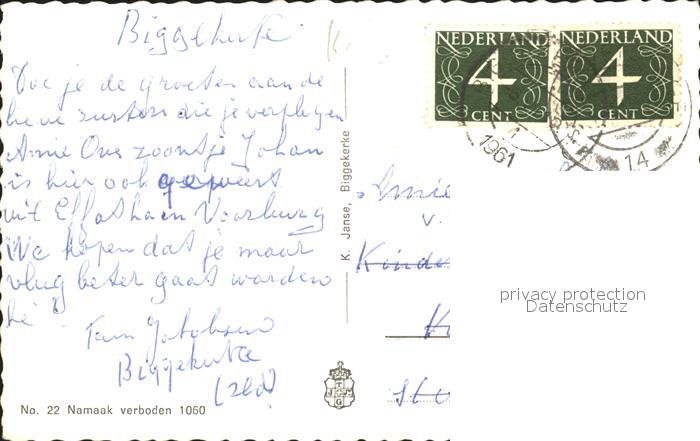 Biggekerke
Doe je de groeten aan de
lieve zusters die je verplegen
Annie Ons zoontje Johan
is hier ook geweest
uit Effatha in Voorburg
We hopen dat je maar
vlug beter gaat worden
hé
Fam
Biggekerke
(Zld)
No. 22 Namaak verboden 1060
K. Janse, Biggekerke
NEDERLAND
4
CENT
NEDERLAND
4
CENT
1961
14
Annie
v.
Kinde
privacy protection
Datenschutz